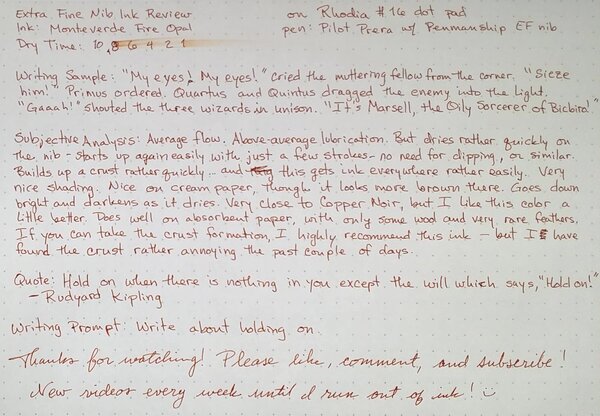 Extra Fine Nib Ink Review on Rhodia #16 dot pad
Ink: Monteverde Fire Opal pen: Pilot Prera w/ Penmanship EF nib
Dry Time: 10 8 6 4 2 1
Writing Sample: "My eyes! My eyes!" cried the muttering fellow from the corner. "Sieze
him!" Primus ordered. Quartus and Quintus dragged the enemy into the light.
"Gaaah!" shouted the three wizards in unison. "It's Marsell, the Oily Sorcerer of Bicbird!"
Subjective Analysis: Average flow. Above-average lubrication. But dries rather quickly on
the nib - starts up again easily with just a few strokes - no need for dipping, or similar.
Builds up a crust rather quickly... and this gets ink everywhere rather easily. Very
nice shading. Nice on cream paper, though it looks more brown there. Goes down
bright and darkens as it dries. Very close to Copper Noir, but I like this color a
little better. Does well on absorbent paper, with only some wool and very rare feathers.
If you can take the crust formation, I highly recommend this ink - but I have
found the crust rather annoying the past couple of days.
Quote: Hold on when there is nothing in you except the will which says, "Hold on!"
- Rudyard Kipling
Writing Prompt: Write about holding on.
Thanks for watching! Please like, comment, and subscribe!
New videos every week until I run out of ink! :)